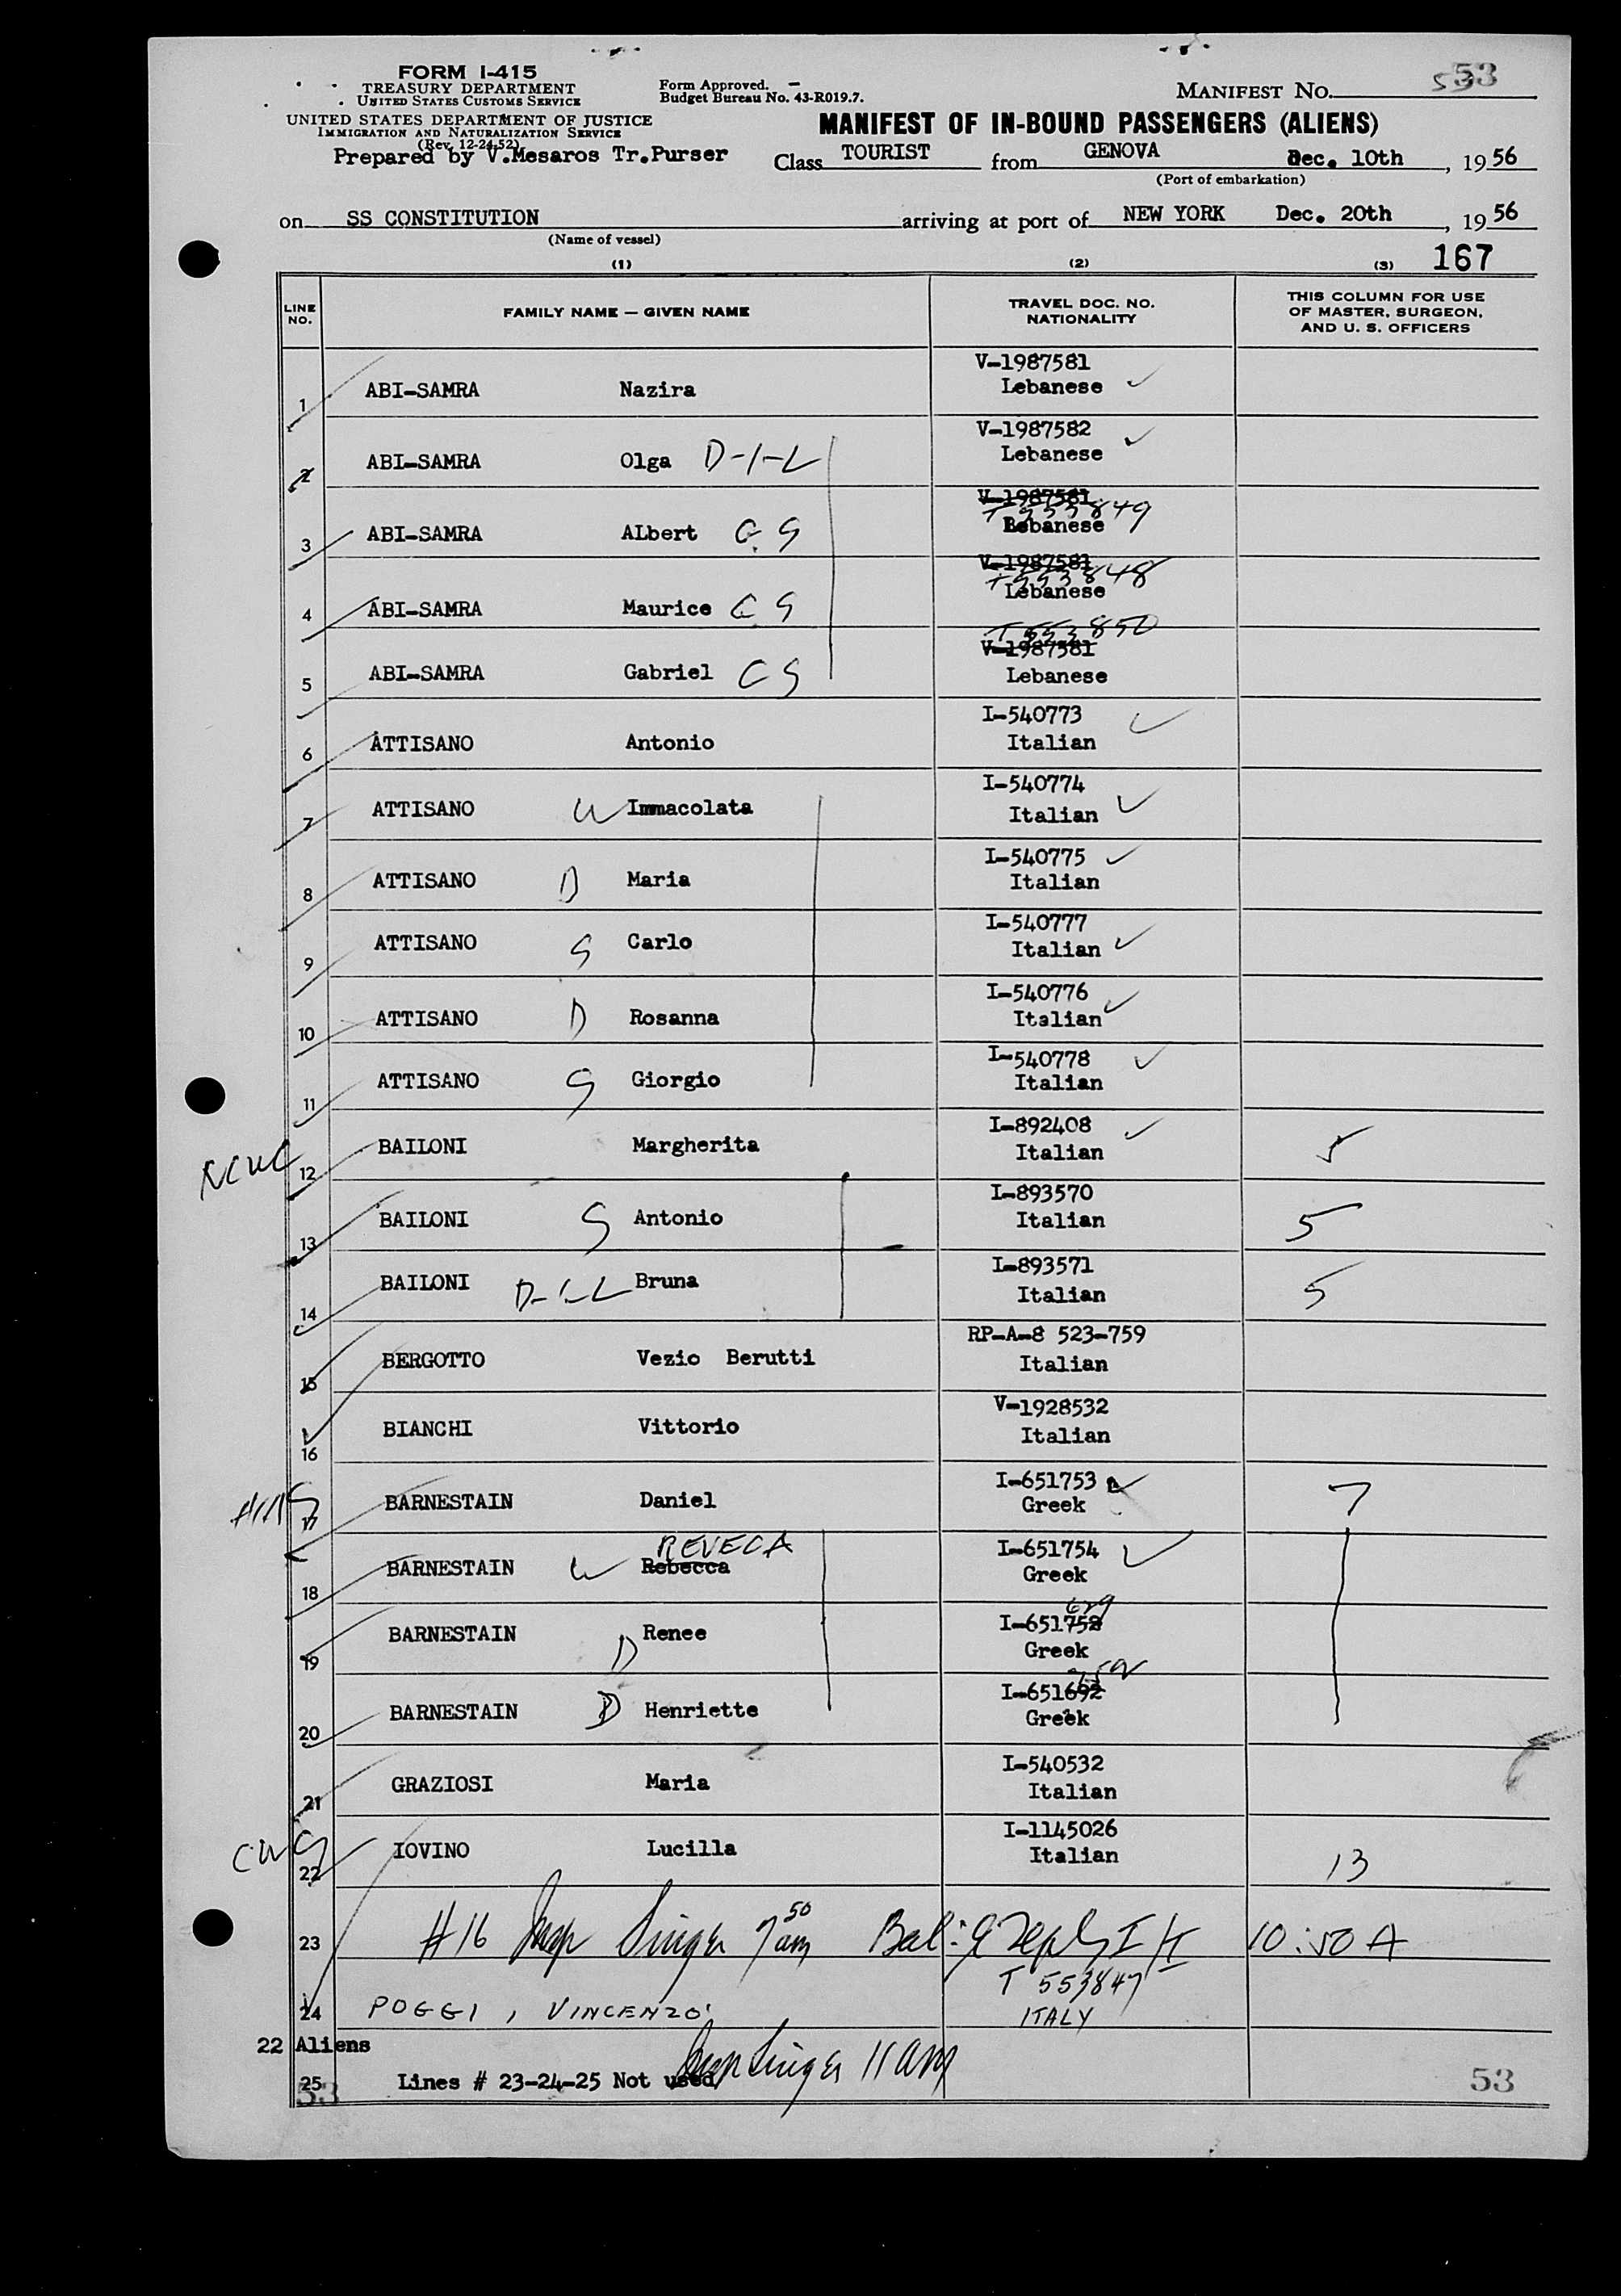 FORM I-415
TREASURY DEPARTMENT
UNITED STATES CUSTOMS SERVICE
UNITED STATES DEPARTMENT OF JUSTICE
IMMIGRATION AND NATURALIZATION SERVICE
(Rev. 12-24-52)
Prepared by V.Mesaros Tr.Purser
Form Approved.
Budget Bureau No. 43-R019.7.
MANIFEST NO. 53
MANIFEST OF IN-BOUND PASSENGERS (ALIENS)
Class TOURIST from GENOVA Dec. 10th, 1956
(Port of embarkation)
on SS CONSTITUTION arriving at port of NEW YORK Dec. 20th, 1956
(Name of vessel)
(1) (2) (3) 167
LINE NO. FAMILY NAME — GIVEN NAME TRAVEL DOC. NO. NATIONALITY THIS COLUMN FOR USE OF MASTER, SURGEON, AND U. S. OFFICERS
V-1987581
1 ABI-SAMRA Nazira Lebanese
V-1987582
2 ABI-SAMRA Olga D-I-L Lebanese
V-1987581
T 553849
3 ABI-SAMRA ALbert G S Lebanese
V-1987581
T 553848
4 ABI-SAMRA Maurice G S Lebanese
T 553850
V-1987581
5 ABI-SAMRA Gabriel G S Lebanese
I-540773
6 ATTISANO Antonio Italian
I-540774
7 ATTISANO W Immacolata Italian
I-540775
8 ATTISANO D Maria Italian
I-540777
9 ATTISANO S Carlo Italian
I-540776
10 ATTISANO D Rosanna Italian
I-540778
11 ATTISANO S Giorgio Italian
I-892408
NCWC 12 BAILONI Margherita Italian 5
I-893570
13 BAILONI S Antonio Italian 5
I-893571
14 BAILONI D-I-L Bruna Italian 5
RP-A-8 523-759
15 BERGOTTO Vezio Berutti Italian
V-1928532
16 BIANCHI Vittorio Italian
I-651753
17 BARNESTAIN Daniel Greek 7
REVECA I-651754
18 BARNESTAIN W Rebecca Greek
I-651758
19 BARNESTAIN D Renee Greek
I-651692
20 BARNESTAIN D Henriette Greek
I-540532
21 GRAZIOSI Maria Italian
I-1145026
22 IOVINO Lucilla Italian 13
23 #16 Insp Singer 7 50 am 10:50 A
T 553847
24 POGGI, VINCENZO ITALY
22 Aliens
25 Lines # 23-24-25 Not used Insp Singer 11 am
53 53